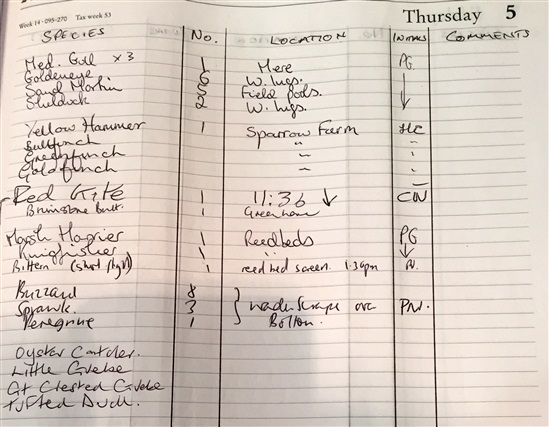 Week 14 · 095-270 Tax week 53
Thursday 5
SPECIES No. LOCATION INITIALS COMMENTS
Med. Gull x3 1 Mere PG
Goldeneye 6 W. lugs.
Sand Martin 5 Field pods.
Shelduck 2 W. lugs.
Yellow Hammer 1 Sparrow Farm
Bullfinch "
Greenfinch "
Goldfinch "
Red Kite 1 11:36 ↓
Brimstone butt. 1 Greenhouse
Marsh Harrier 1 Reedbeds PG
Kingfisher 1 "
Bittern (short flight) 1 reed bed screen 1.36pm
Buzzard 8
Sprawk. 3 wader scrape over
Peregrine 1 Bolton.
Oyster Catcher.
Little Grebe
Gt Crested Grebe
Tufted Duck.